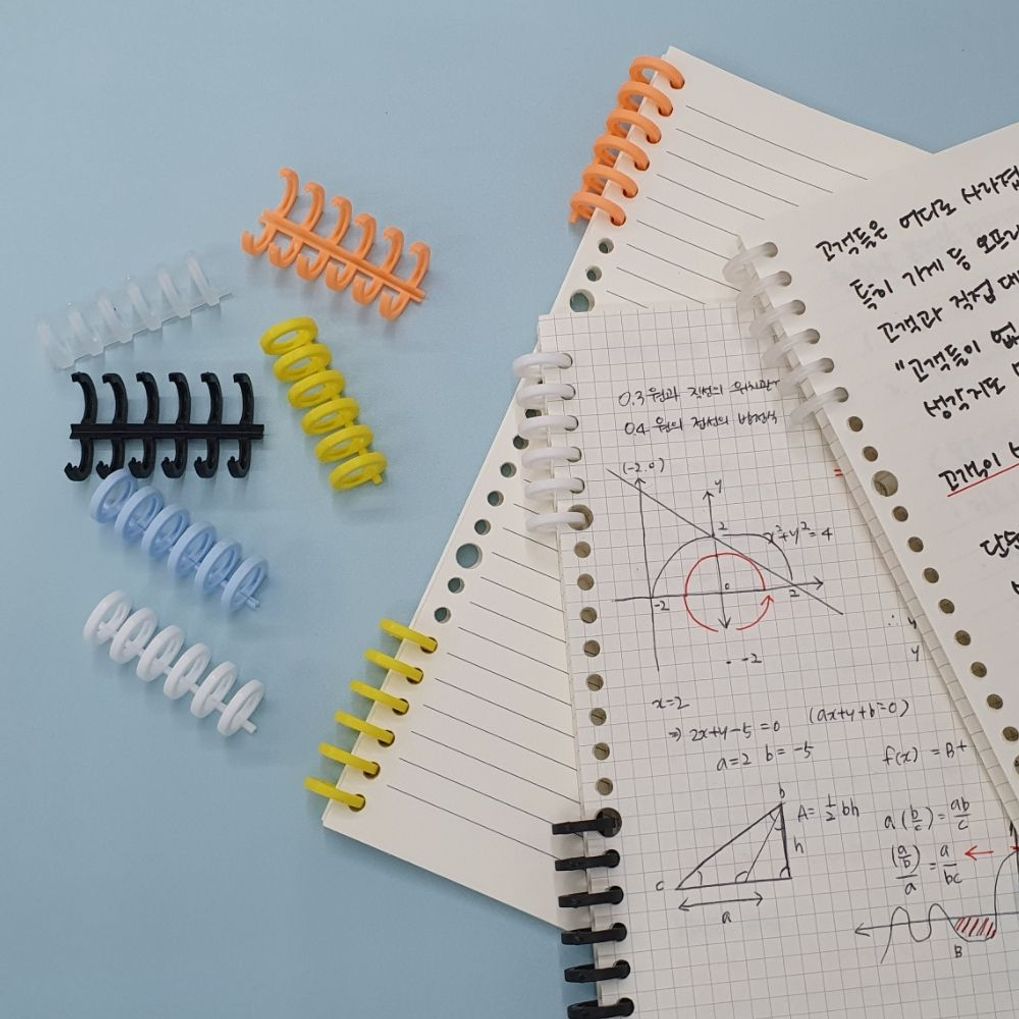 고객들은 어디로 사라졌
특히 가게 등 오프라
고객과 직접 대
"고객들이 없
생각지도
고객이
단순
0.3 원과 직선의 위치관
04 원의 접선의 방정식
(-2.0)
y
2
x²+y²=4
-2
0
2
-2
∴ y
y
x=2
⇒ 2x+y-5=0 (ax+y+b=0)
a=2 b=-5
f(x) = B+
b
A= 1/2 bh
h
c
a
a(b/c)=ab/c
(a/b)/a = a/bc
B